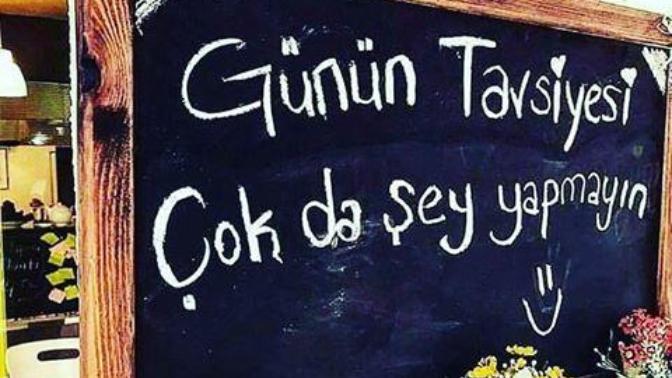 Günün Tavsiyesi
Çok da şey yapmayın